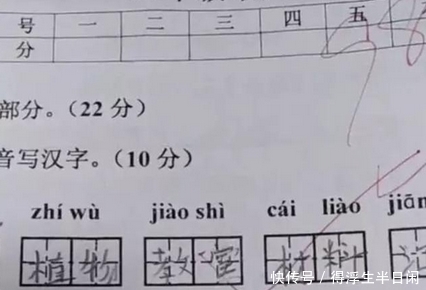 号 一 二 三 四 五
分
部分。(22 分)
音写汉字。(10 分)
zhí wù jiào shì cái liào jiān
植物 教室 材料
快传号 / 得浮生半日闲